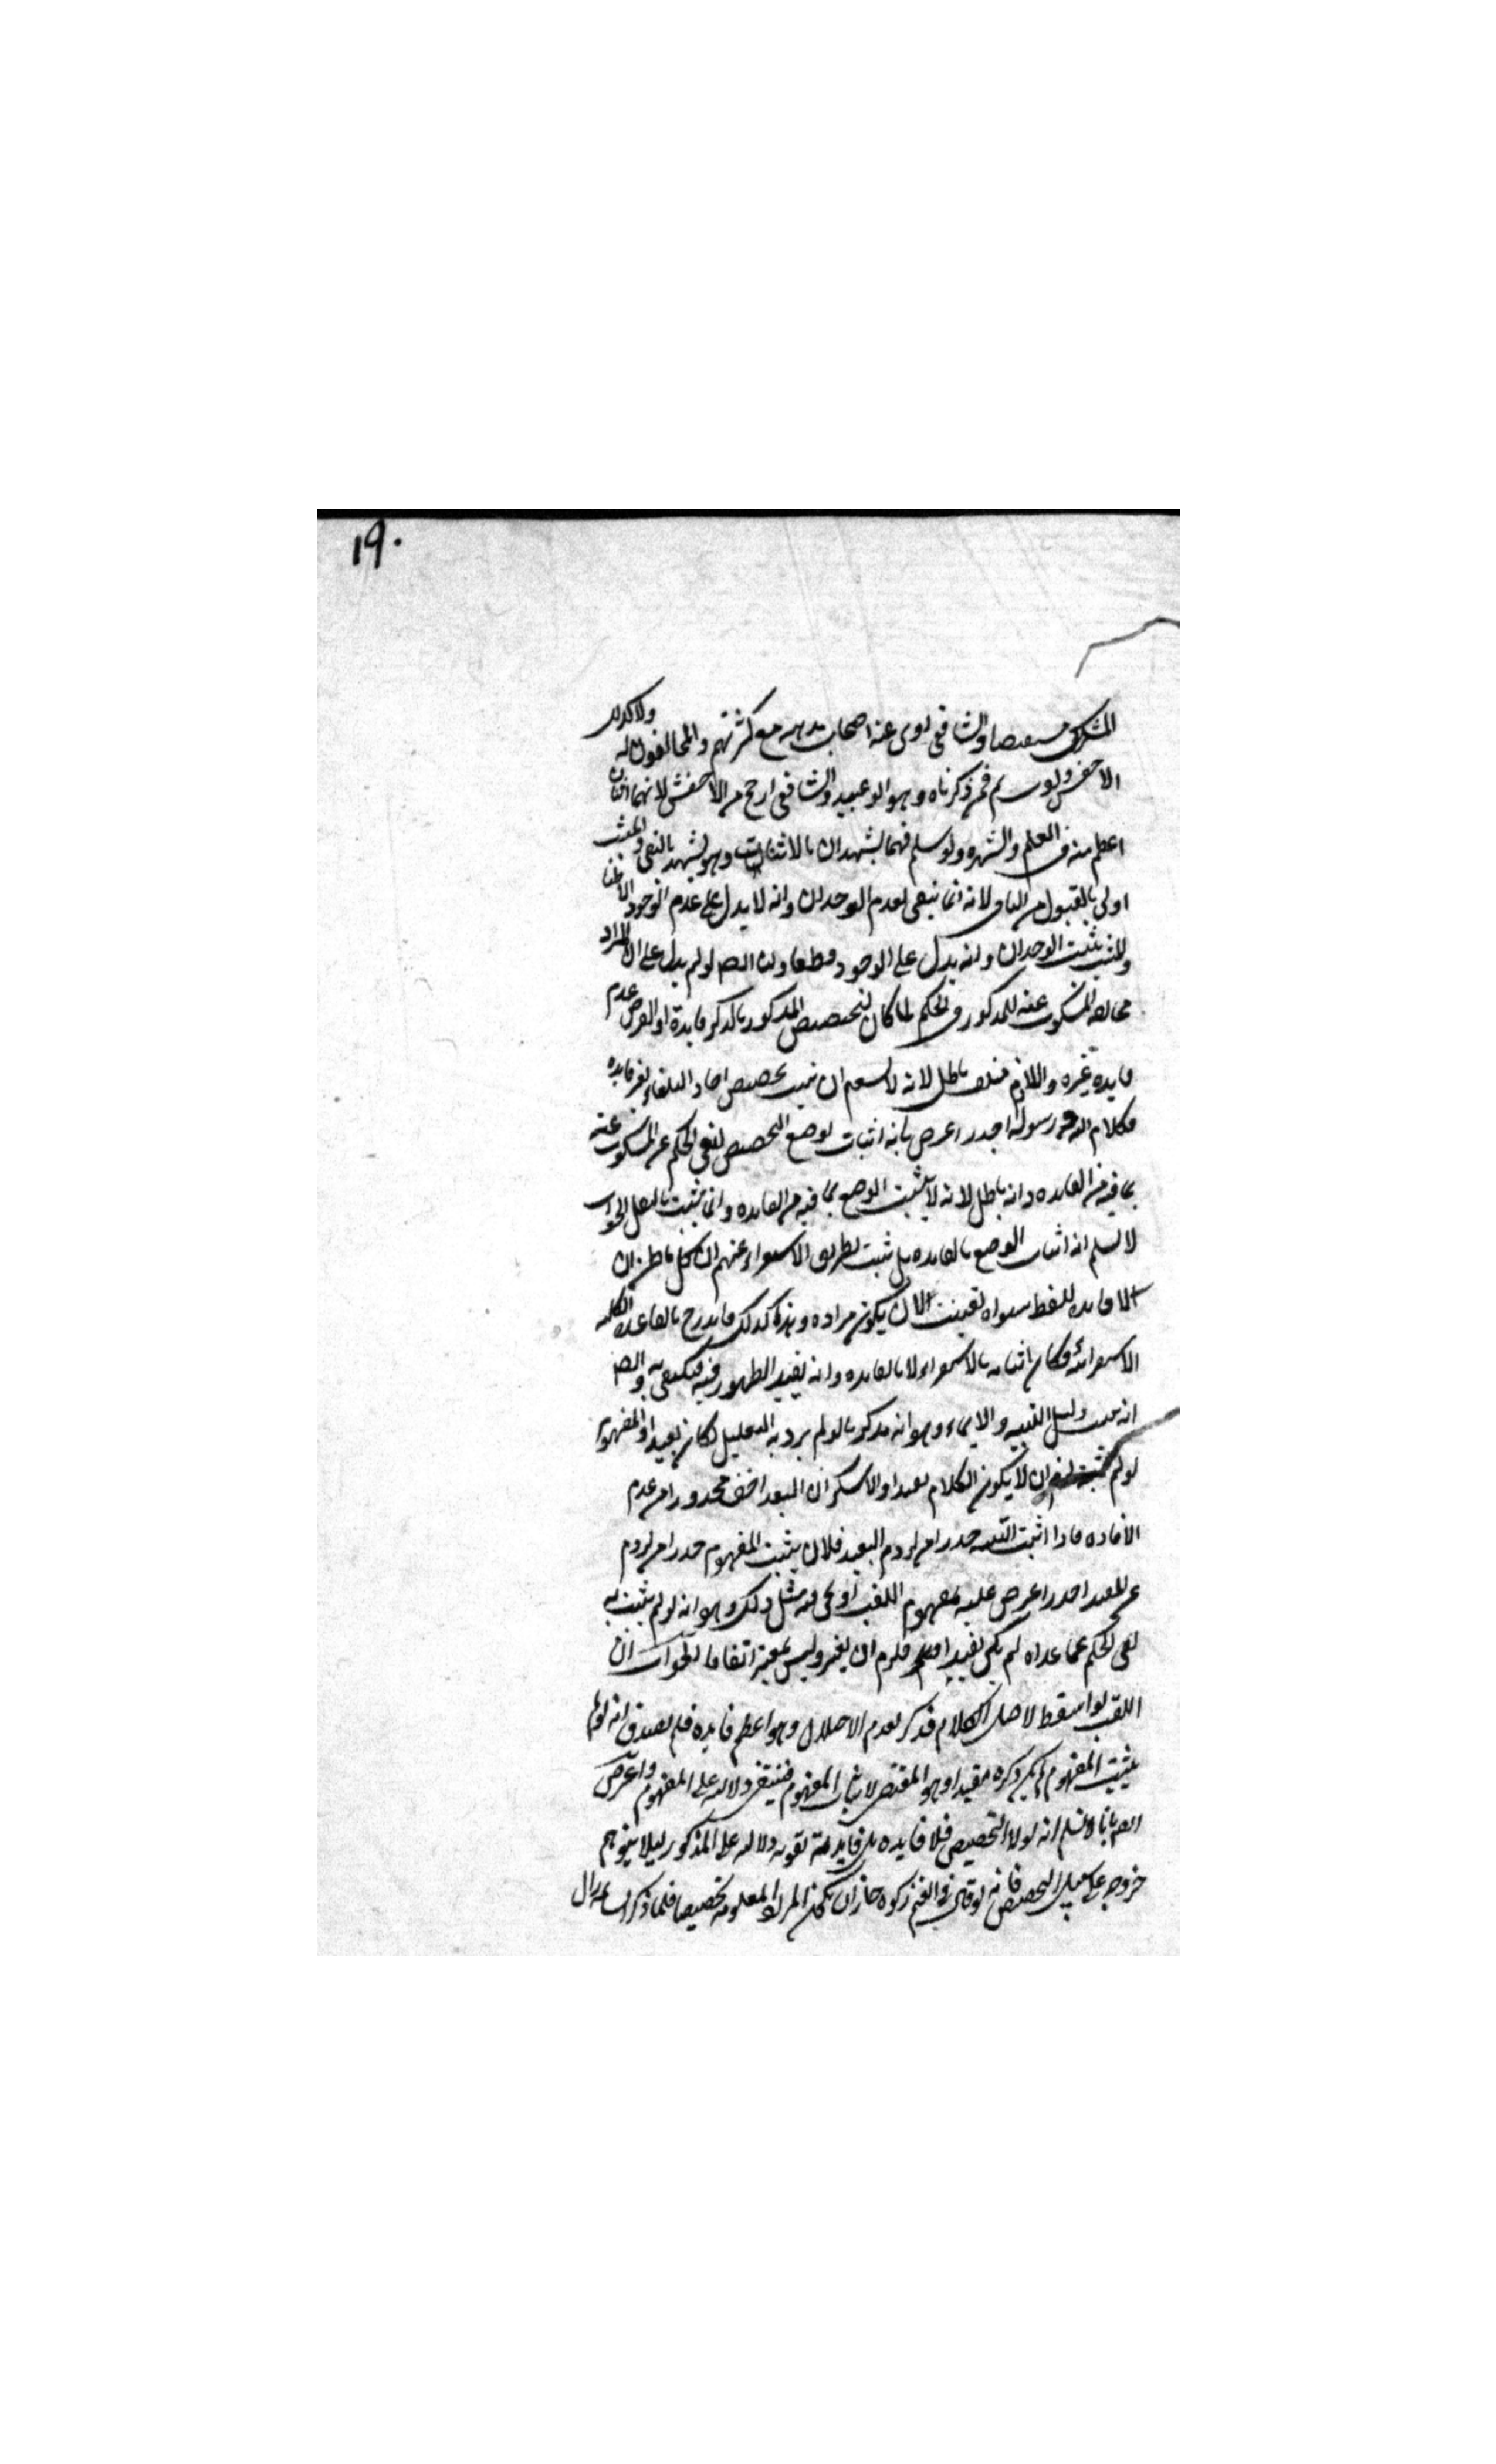 ١٩٠
المشركين مستفيضا والشافعي روى عنه اصحاب مذهبه مع كثرتهم والمخالفون له ولا كذلك
الاخفش ولو سلم فمن ذكرناه وهو ابو عبيد والشافعي ارجح من الاخفش لانهما اثنان
اعظم منه في العلم والشهرة ولو سلم فهما يشهدان بالاثبات وهو يشهد بالنفي والمثبت
اولى بالقبول من النافي لانه انما ينفي لعدم الوجدان وانه لا يدل على عدم الوجود الا ظنا
والمثبت يثبت الوجدان وانه يدل على الوجود قطعا ولنا ايضا لو لم يدل على ان المراد
مخالفة المسكوت عنه للمذكور في الحكم لما كان لتخصيص المذكور بالذكر فايدة اذ الفرض عدم
فايدة غيره واللازم منتف باطل لانه لا يستقيم ان يثبت تخصيص احاد البلغاء لغير فايده
فكلام الله ورسوله اجدر اعترض بانه اثبات لوضع التخصيص لنفي الحكم عن المسكوت عنه
بما فيه من الفايده وانه باطل لانه لا يثبت الوضع بما فيه من الفايده وانما يثبت بالنقل الجواب
لا نسلم انه اثبات الوضع بالفايده بل يثبت بطريق الاستقراء عنهم ان كل ما ظن ان
لا فايده للفظ سواه تعينت لان يكون مراده وهذا كذلك فاندرج بالقاعدة الكلية
الاستقرائية فكان اثباته بالاستقراء لا بالفايده وانه يفيد الظهور فيه فيكتفى به وايضا
انه ثبت دليل التنبيه والايماء وهو انه مذكور بالو لم يرد به التعليل لكان بعيدا والمفهوم
لو لم يثبت لزم ان لا يكون الكلام مفيدا ولا شك ان البعد اخف محذورا من عدم
الافاده فاذا اثبت التنبيه حذرا من لزوم البعيد فلان يثبت المفهوم حذرا من لزوم
غير المفيد اجدر اعترض عليه بمفهوم اللقب اذ يجي فيه مثل ذلك وهو انه لو لم يثبت به
نفي الحكم عما عداه لم يكن مفيدا فلزم ان يعتبر وليس بمعتبر اتفاقا الجواب ان
اللقب لو اسقط لاختل الكلام فذكر لعدم الاختلال وهو اعظم فايده فلم يصدق انه لو لم
يثبت المفهوم لم يكن ذكره مفيدا وهو المقتضي لاثبات المفهوم فينتفي دلالته على المفهوم واعترض
ايضا بانا لا نسلم انه لولا التخصيص فلا فايده بل فايدته تقويه دلالته على المذكور ليلا يتوهم
خروجه على سبيل التخصيص فانه لو قال في الغنم زكوة جاز ان يكون المراد المعلومة تخصيصا فلما ذكر السائمه زال